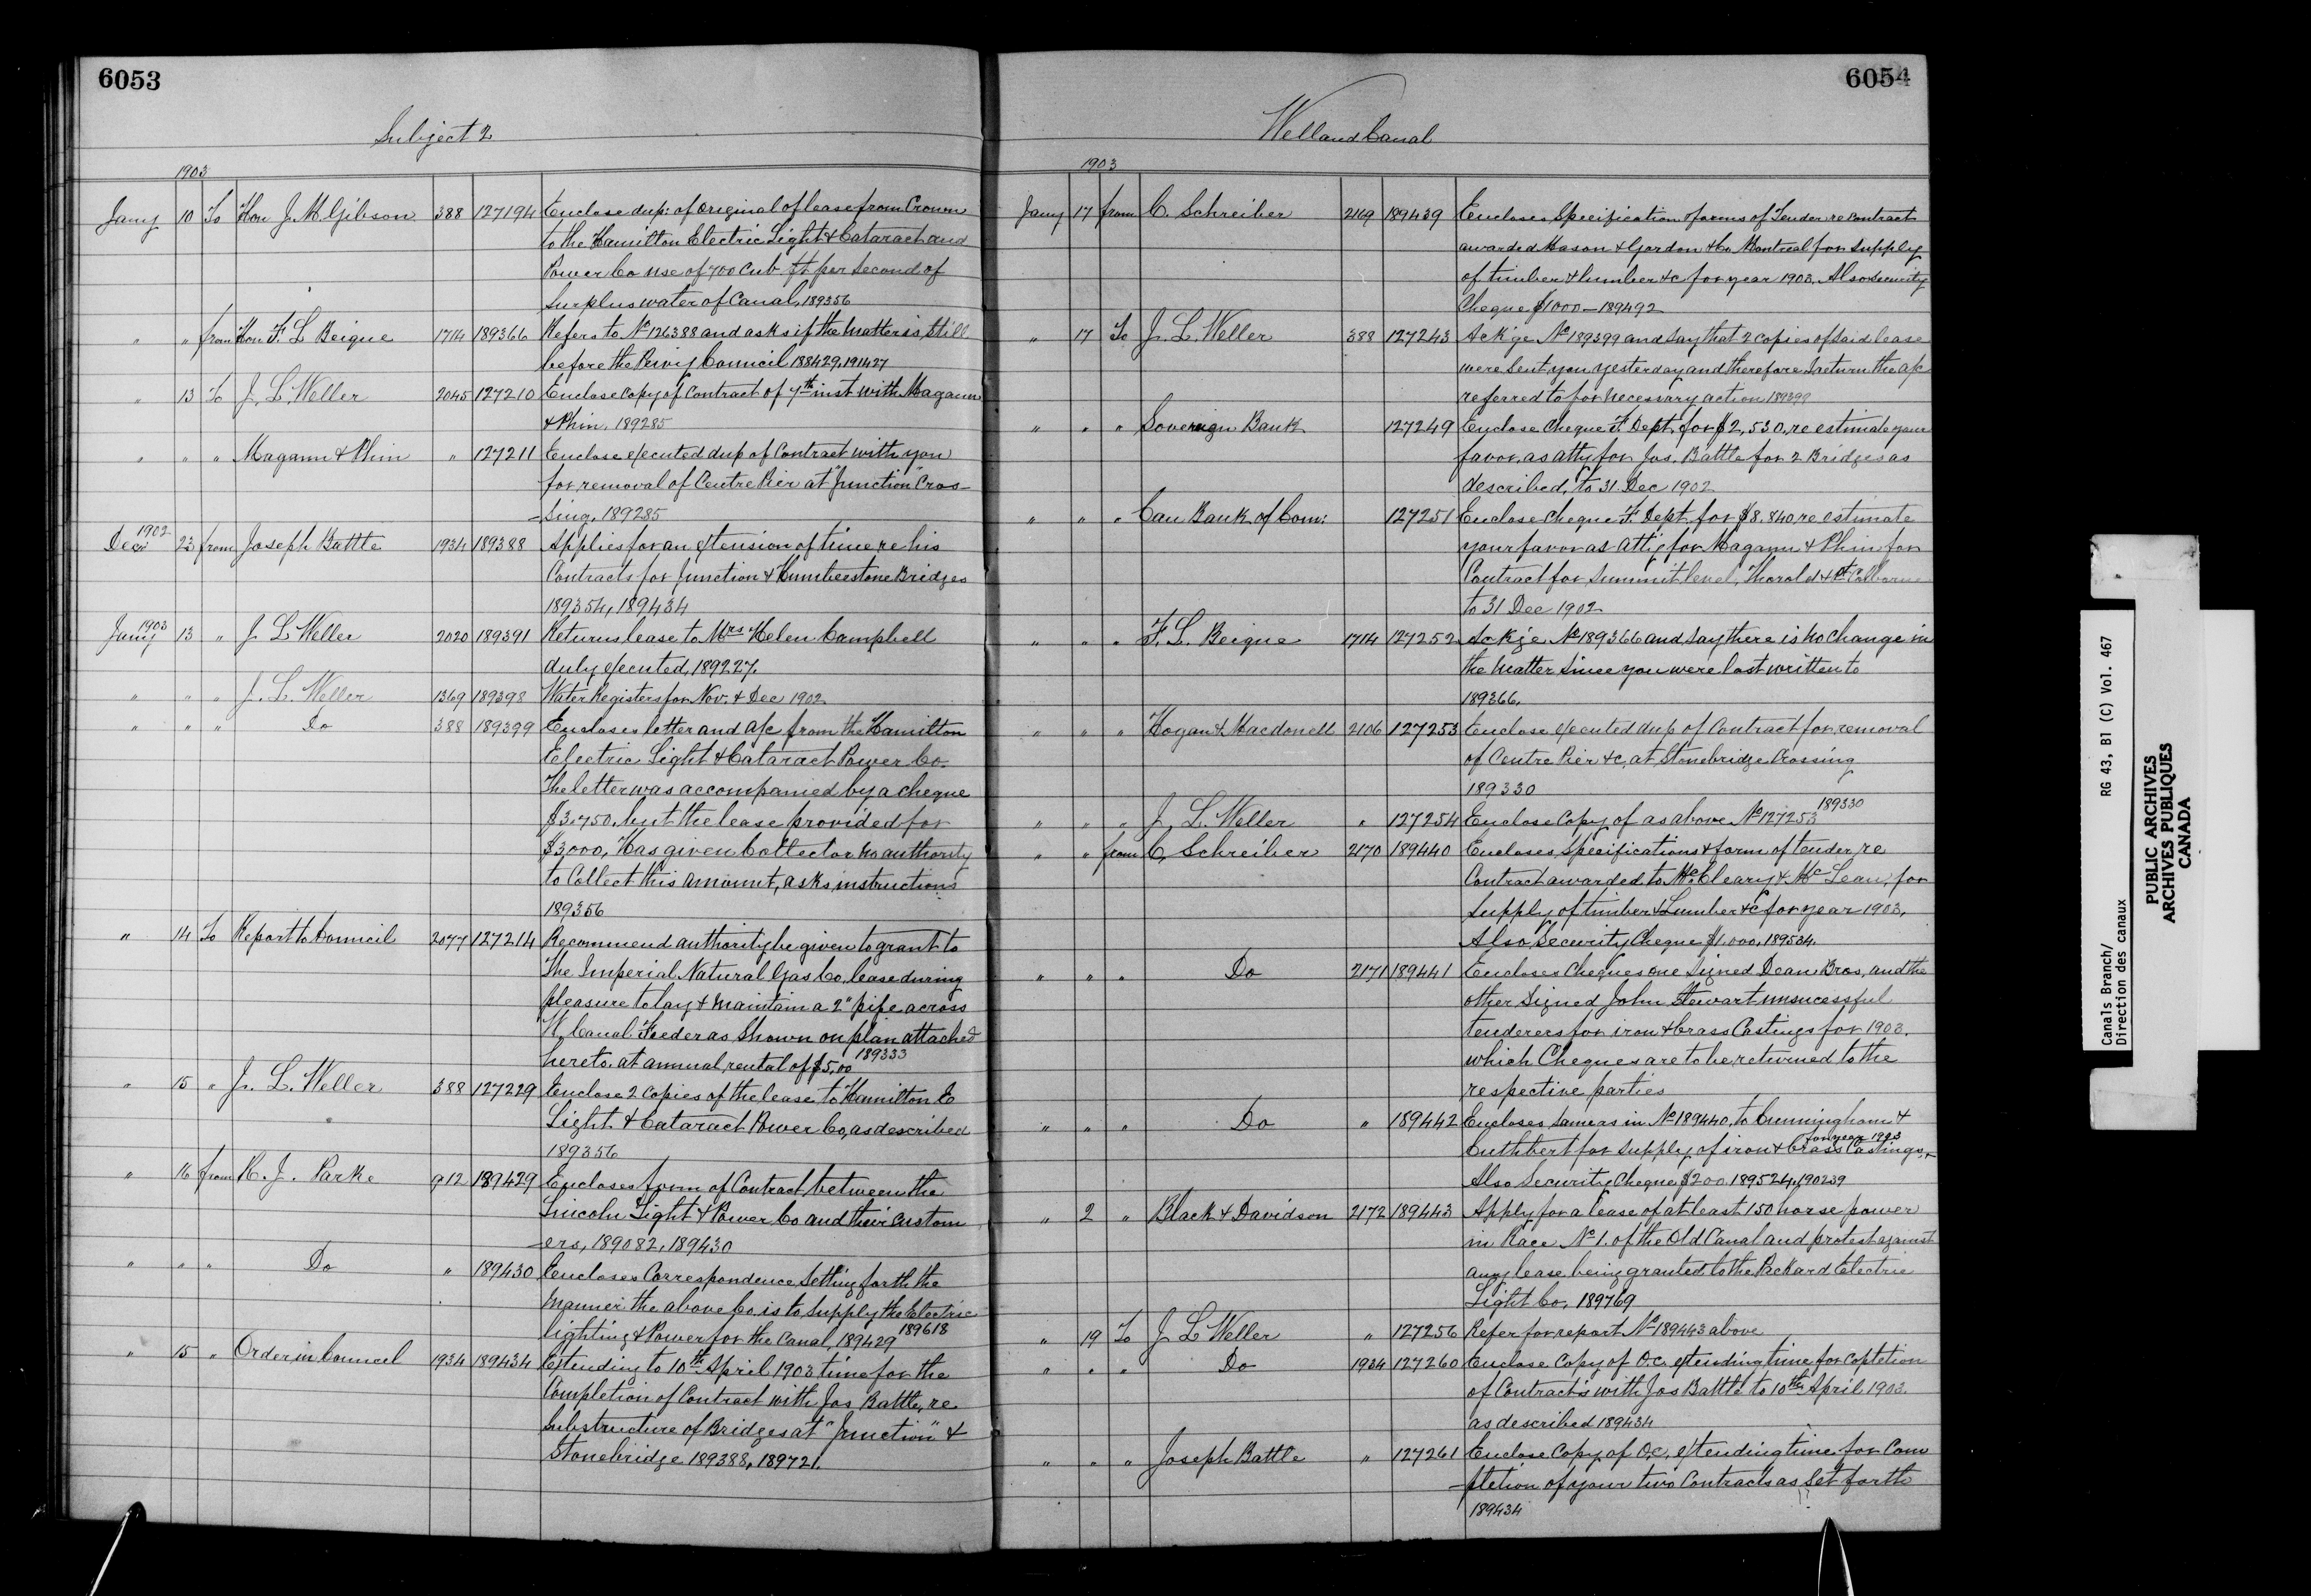 6053
Subject 2
1903
Jany 10 To Hon J. M. Gibson 388 127194 Enclose dup: of original of lease from Crown
to the Hamilton Electric Light & Cataract and
Power Co use of 700 Cub ft per second of
Surplus water of Canal, 189356
" " from Hon. F. L Beique 1714 189366 Refers to No 126388 and asks if the matter is still
before the Privy Council 188429, 191427
" 13 To J. L. Weller 2045 127210 Enclose copy of Contract of 7th inst with Magann
& Phin. 189285
" " " Magann & Phin " 127211 Enclose executed dup of Contract with you
for removal of Centre Pier at "Junction" Cros-
-sing, 189285
1902
Decr 23 from Joseph Battle 1934 189388 Applies for an extension of time re his
Contracts for Junction & Humberstone Bridges
189354, 189434
1903
Jany 13 " J. L Weller 2020 189391 Returns lease to Mrs Helen Campbell
duly executed, 189227.
" " " J. L. Weller 1369 189398 Water Registers for Nov. & Dec 1902.
" " " Do 388 189399 Encloses letter and a/c from the Hamilton
Electric Light & Cataract Power Co.
The letter was accompanied by a cheque
$3,750, but the lease provided for
$3000, Has given Collector no authority
to Collect this amount, asks instructions
189356
" 14 To Report to Council 2077 127214 Recommend authority be given to grant to
The Imperial Natural Gas Co, lease during
pleasure to lay & maintain a 2" pipe across
W, Canal Feeder as shown on plan attached
hereto. at annual rental of $5,00 189333
" 15 " J. L. Weller 388 127229 Enclose 2 copies of the lease to Hamilton E
Light & Cataract Power Co, as described
189356
" 16 from R. J. Parke 912 189429 Encloses form of Contract between the
Lincoln Light & Power Co and their custom
-ers, 189082, 189430
" " " Do " 189430 Encloses Correspondence setting forth the
manner the above Co. is to supply the Electric
lighting & Power for the Canal, 189429 189618
" 15 " Order in Council 1934 189434 Extending to 10th April 1903 time for the
Completion of Contract with Jos Battle, re
Substructure of Bridges at "Junction" &
Stonebridge 189388, 189721.
6054
Welland Canal
1903
Jany 17 from C. Schreiber 2169 189439 Encloses Specification forms of Tender re contract
awarded Mason & Gordon & Co Montreal for supply
of timber & lumber &c for year 1903. Also security
Cheque $1000 — 189492
" 17 To J. L. Weller 388 127243 Ackge No 189399 and say that 2 copies of said lease
were sent you yesterday and therefore I return the a/c
referred to for necessary action 189399
" " " Sovereign Bank 127249 Enclose Cheque F. Dept. for $2,530, re estimate your
favor, as atty for Jos. Battle for 2 Bridges as
described, to 31. Dec 1902
" " " Can Bank of Com: 127251 Enclose cheque F. Dept. for $8.840, re estimate
your favor as Atty for Magann & Phin for
Contract for Summit level, Thorold & Pt Colborne
to 31 Dec 1902
" " " F. L. Beique 1714 127252 Ackge No 189366 and say there is no change in
the matter since you were last written to
189366.
" " " Hogan & Macdonell 2106 127253 Enclose executed dup of Contract for removal
of Centre Pier &c, at Stonebridge Crossing
189330
" " " J. L. Weller " 127254 Enclose Copy of as above No 127253 189330
" " from C, Schreiber 2170 189440 Encloses, Specifications & form of tender, re
Contract awarded to McCleary & McLean, for
supply of timber & Lumber &c for year 1903,
Also Security Cheque $1,000, 189534.
" " " Do 2171 189441 Encloses Cheques one signed Dean Bros, and the
other signed John Stewart unsucessful
tenderers for iron & brass Castings for 1903.
which Cheques are to be returned to the
respective parties
" " " Do " 189442 Encloses same as in No 189440, to Cunningham &
Cuthbert for supply of iron & brass Castings, for year 1903 &
Also Security Cheque $200. 189524, 190239
" 2 " Black & Davidson 2172 189443 Apply for a lease of at least 150 horse power
in Race No 1. of the Old Canal and protest against
any lease being granted to the Packard Electric
Light Co, 189769
" 19 To J. L Weller " 127256 Refer for report No 189443 above
" " " Do 1934 127260 Enclose Copy of O.C. extending time for Copletion
of Contracts with Jos Battle to 10th April 1903.
as described 189434
" " " Joseph Battle " 127261 Enclose Copy of O.C, extending time for Com
-pletion of your two Contracts as set forth
189434
Canals Branch/ RG 43, B1 (C) Vol. 467
Direction des canaux
PUBLIC ARCHIVES
ARCHIVES PUBLIQUES
CANADA